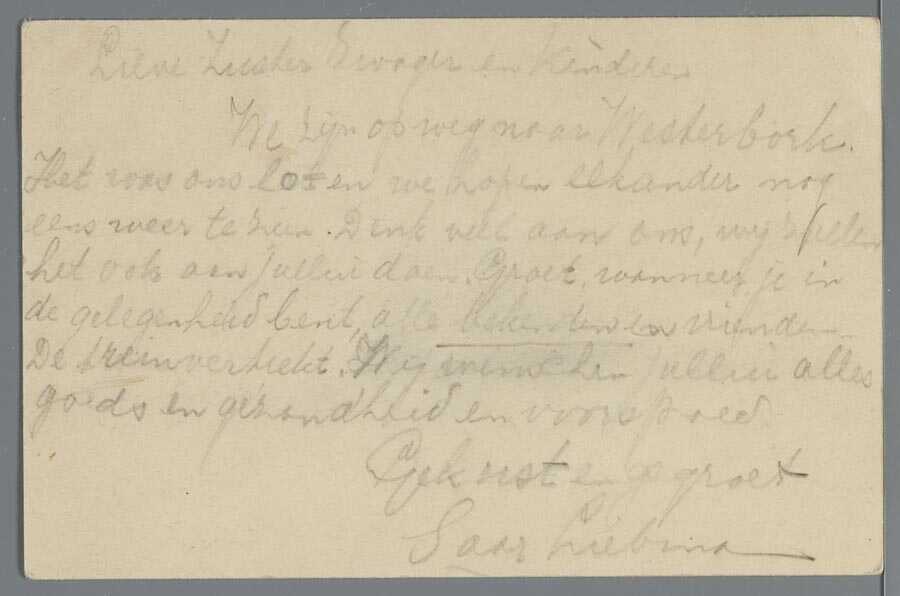 Lieve Zuster Zwager en Kinderen
We zijn op weg naar Westerbork.
Het was ons lot en we hopen elkander nog
eens weer te zien. Denk veel aan ons, wij zullen
het ook aan jullie doen. Groet, wanneer je in
de gelegenheid bent, alle bekenden en vrienden
De trein vertrekt. Wij wenschen jullie alles
goeds en gezondheid en voorspoed
Gekust en gegroet
Saar